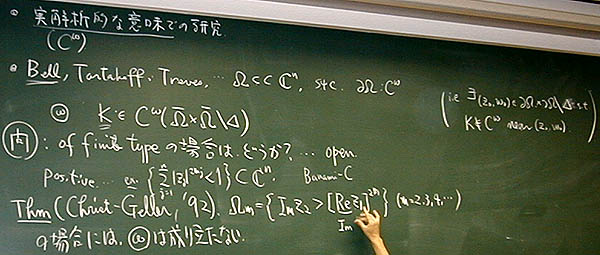 • 実解析的な意味での研究
(C^ω)
• Bell, Tartakoff, Treves, … Ω⊂⊂ℂ^n, s.ψ.c. ∂Ω: C^ω
ⓐ K ∈ C^ω(Ω̄×Ω̄\Δ)
(i.e ∃(z₀,w₀)∈∂Ω×∂Ω\Δ s.t
K∉C^ω near (z₀,w₀))
問: of finite type の場合は、どうか? … open.
positive … ex. {Σ_{j=1}^n |z_j|^{2m_j}<1}⊂⊂ℂ^n
Thm (Christ-Geller, '92). Ω_m={Im z₂ > [Re z₁]^{2m}} (m=2,3,4,…)
Im
の場合には、ⓐは成り立たない.